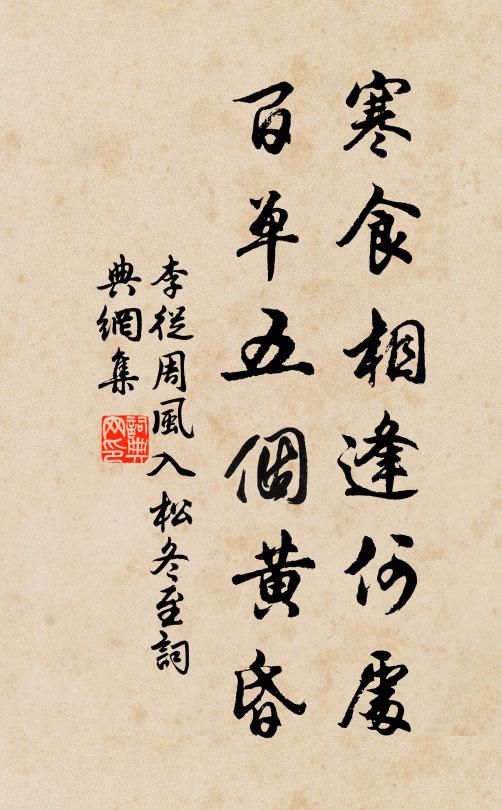 寒食相逢何處
百单五個黃昏
李從周風入松冬至詞
典網集
詞典
网印